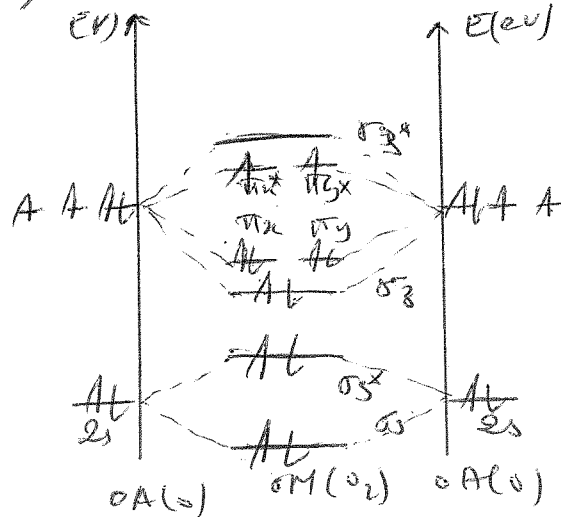 E(V) E(eV)
σz*
πx* πy*
πx πy
σz
σs*
2s σs 2s
OA(O) OM(O2) OA(O)